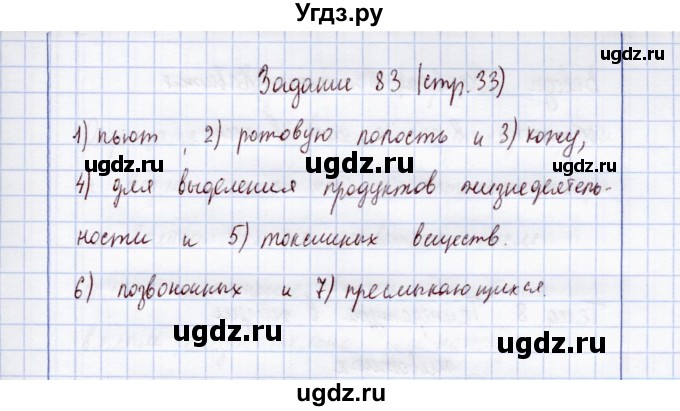 Угдз.ру
Задание 83 (стр. 33)
1) пьют, 2) ротовую полость и 3) кожу,
ugdz.ru ugdz.ru
ugdz.ru
4) для выделения продуктов жизнедеятель-
ности и 5) токсичных веществ.
ugdz.ru ugdz.ru
6) позвоночных и 7) пресмыкающихся.
ugdz.ru
ugdz.ru
ugdz.ru